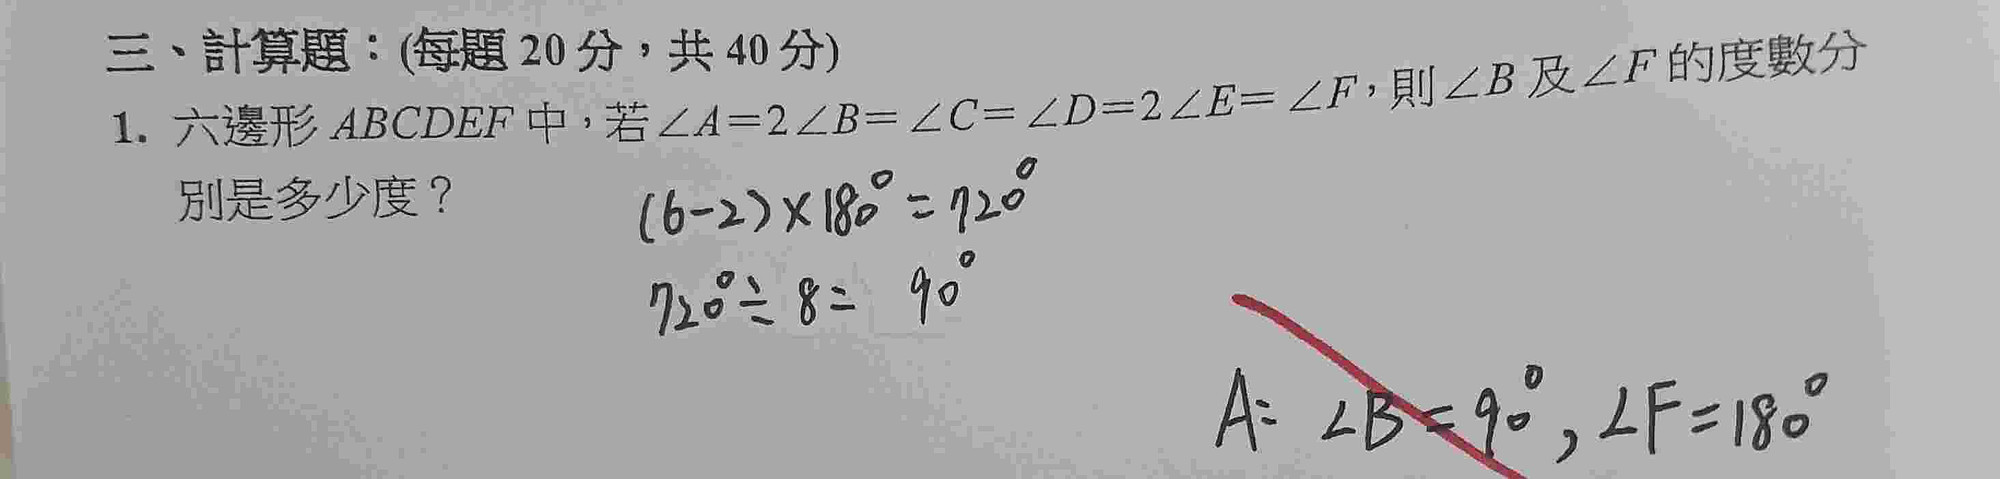 三、計算題：(每題 20 分，共 40 分)
1. 六邊形 ABCDEF 中，若∠A=2∠B=∠C=∠D=2∠E=∠F，則∠B 及∠F 的度數分
別是多少度？
(6-2)×180°=720°
720°÷8= 90°
A: ∠B=90°, ∠F=180°